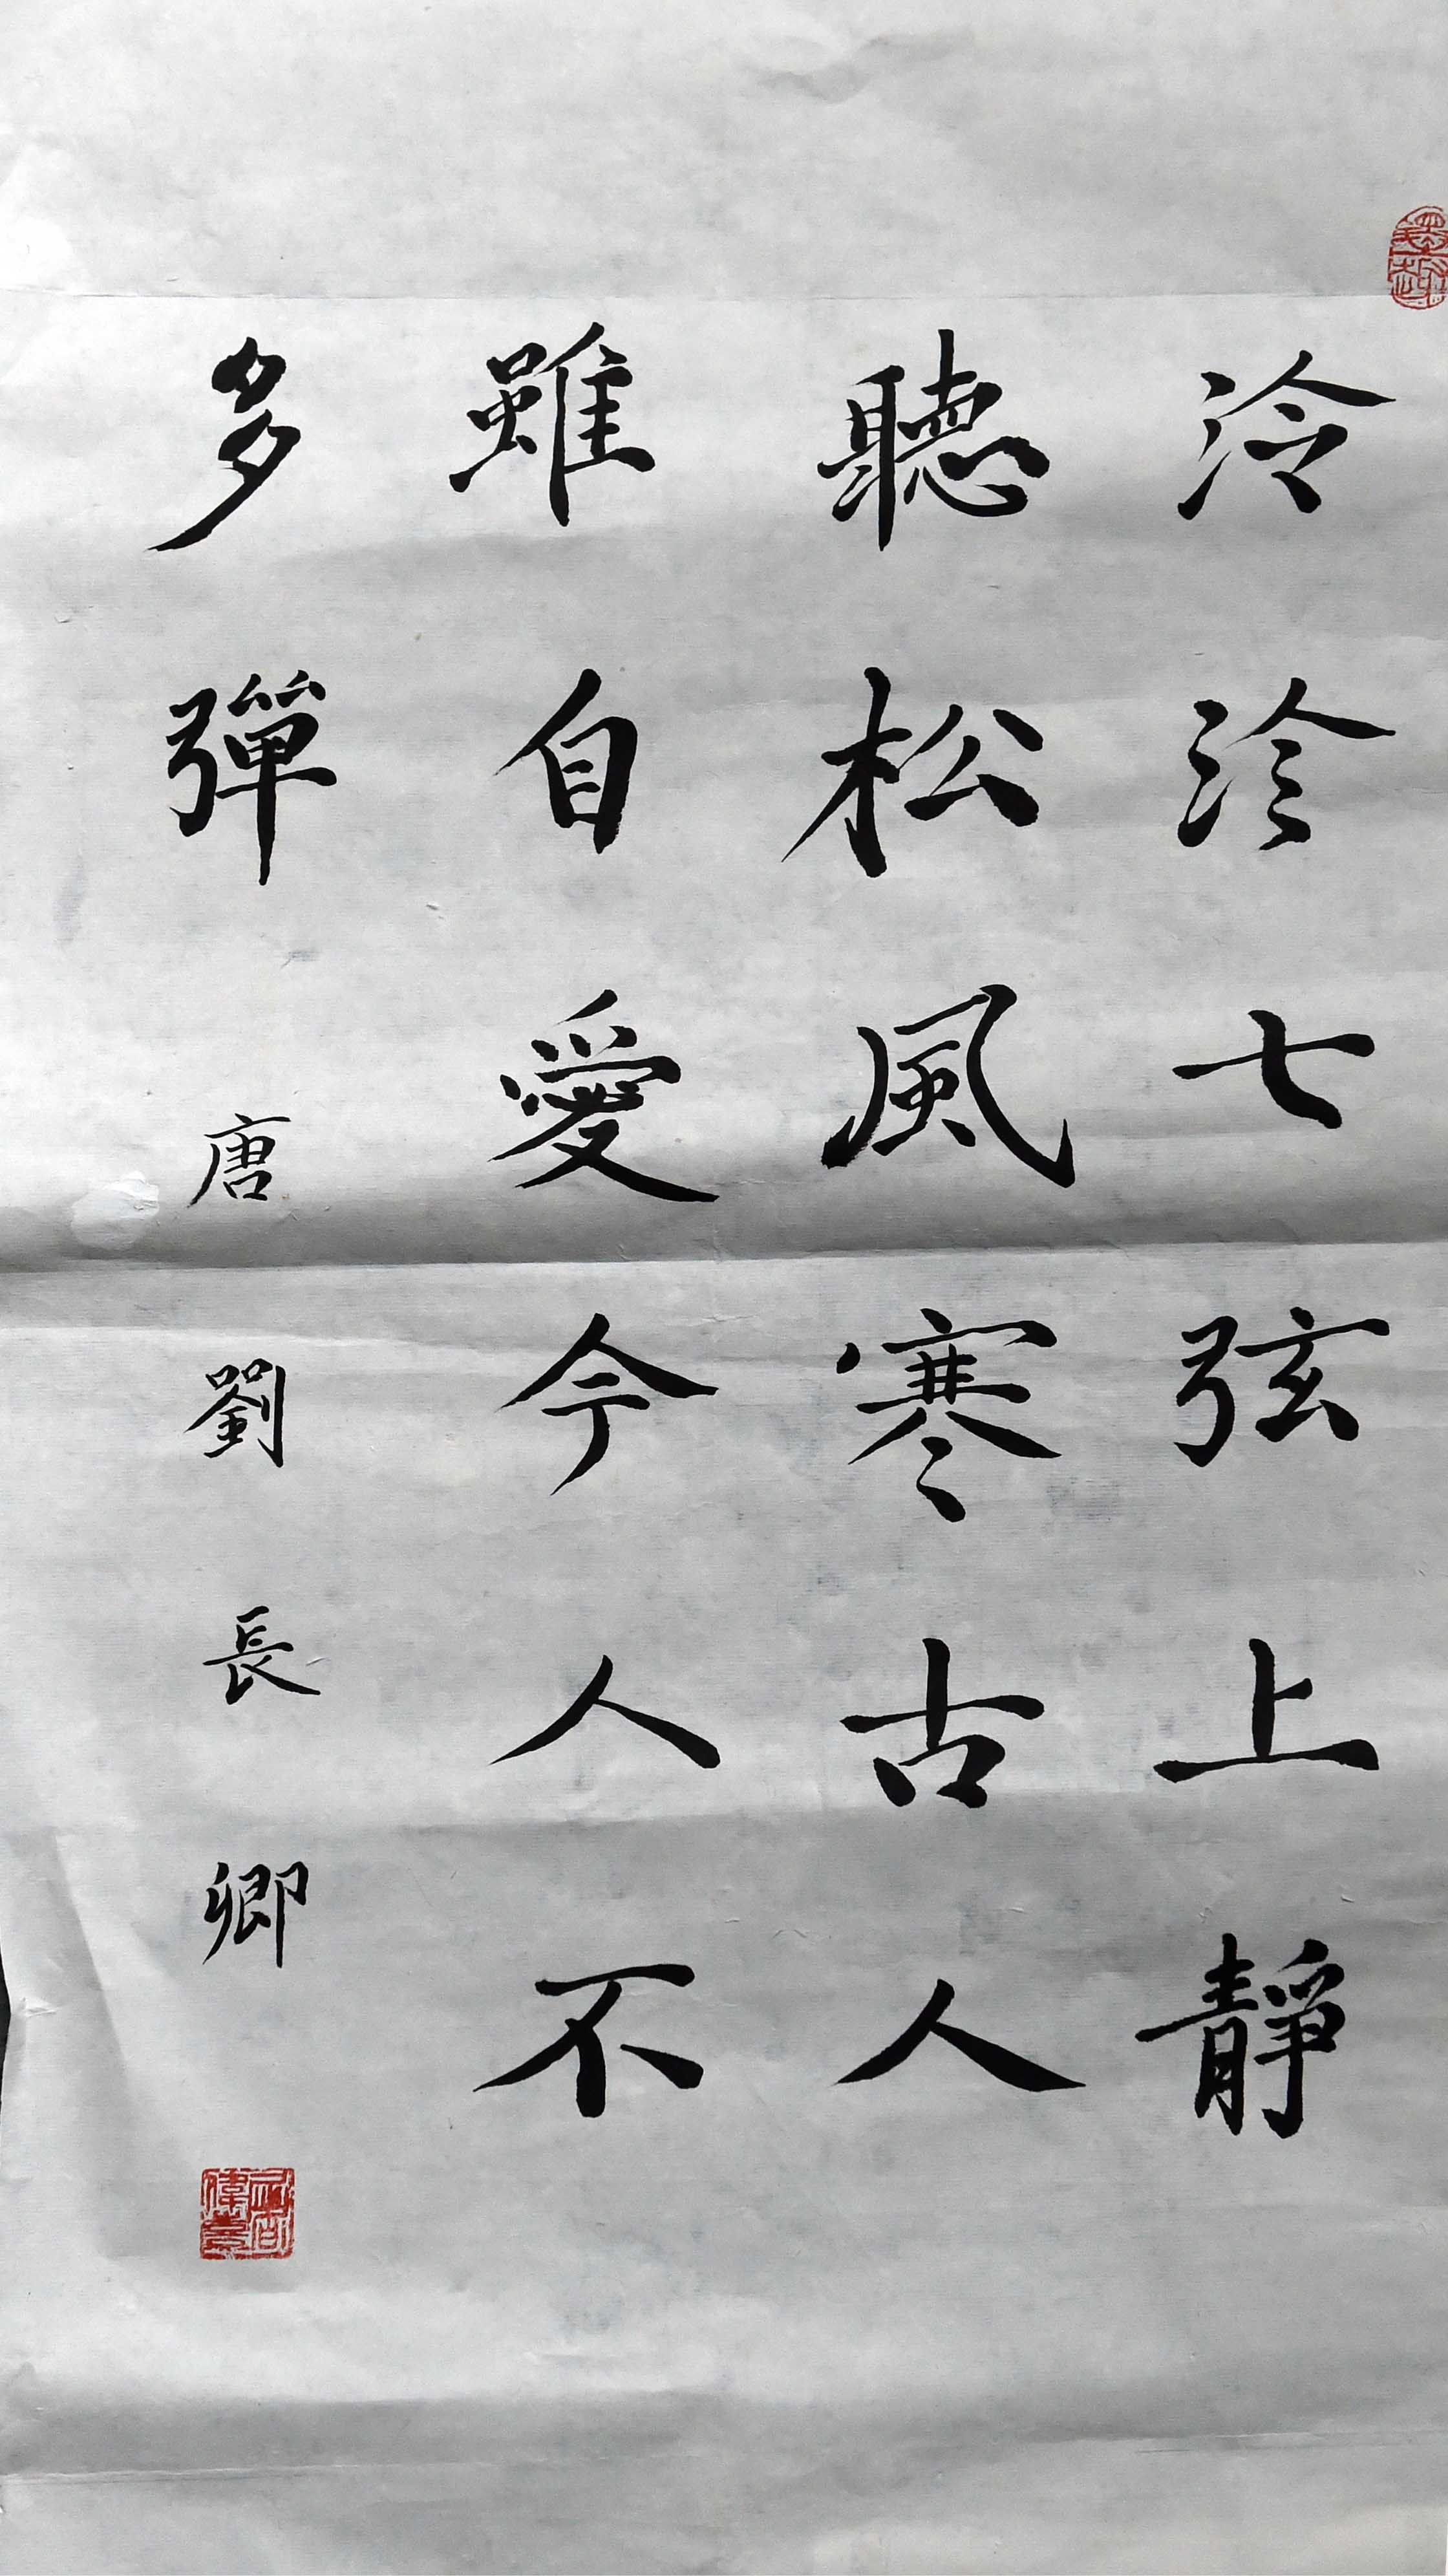 泠泠七弦上靜
聽松風寒古人
雖自愛今人不
多彈 唐 劉長卿